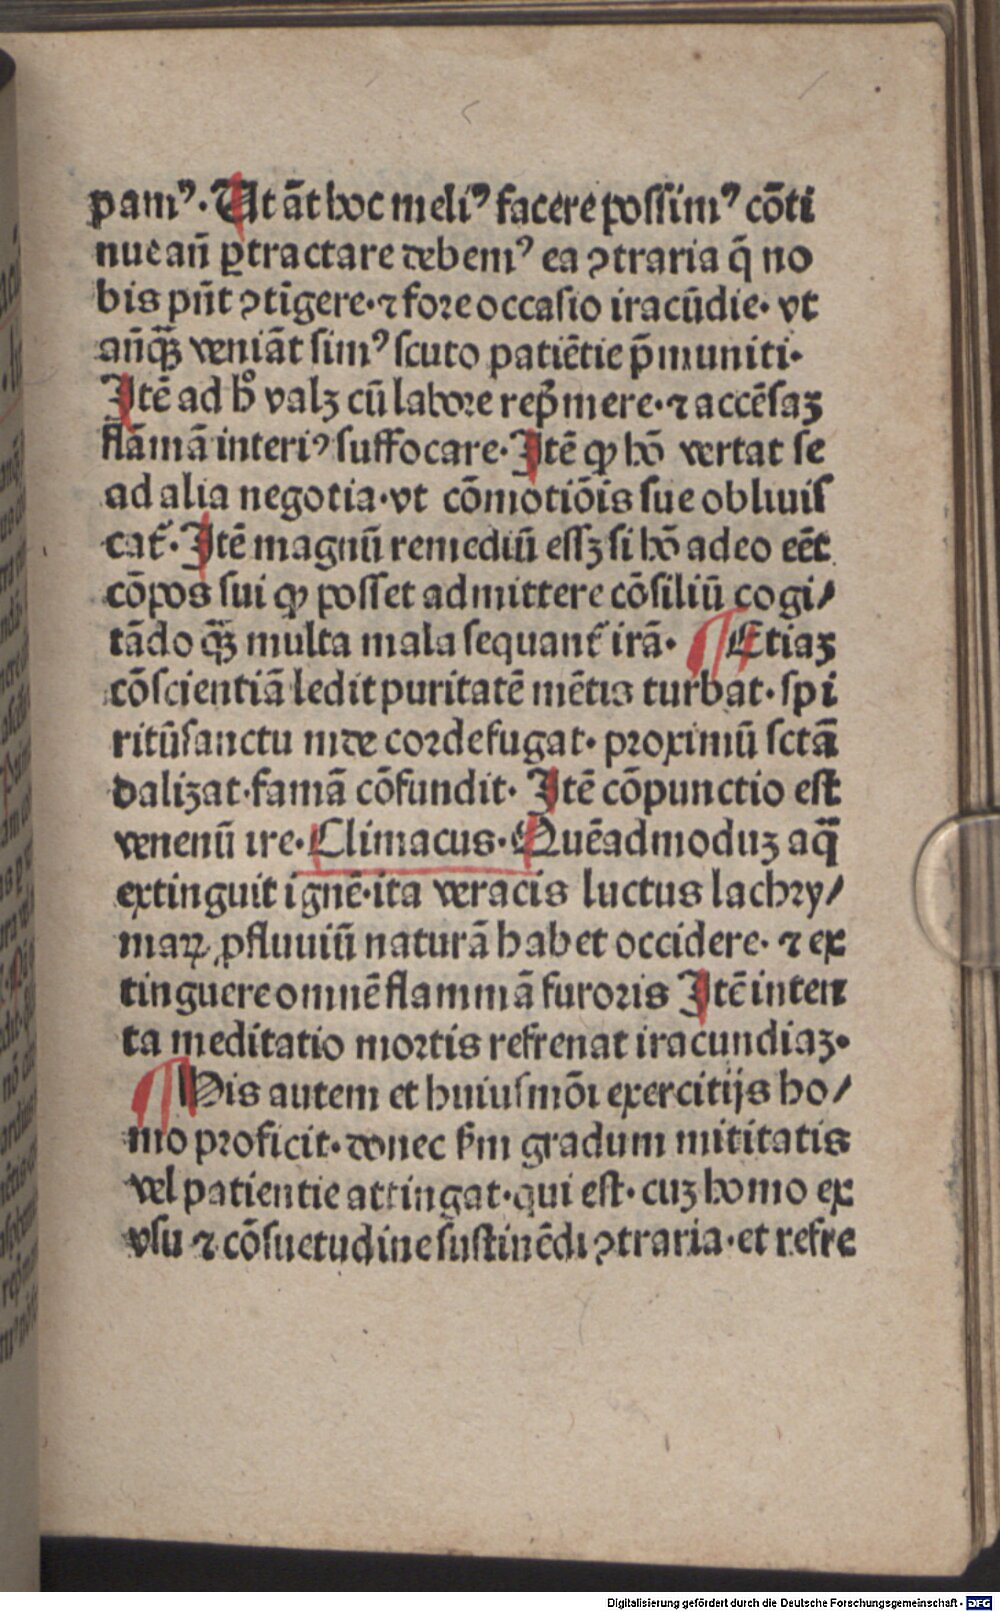 pamꝰ. Ut āt hoc meliꝰ facere possimꝰ cōti
nue an̄ ꝑtractare debemꝰ ea ꝯtraria q̄ no
bis pn̄t ꝯtīgere. ⁊ fore occasio iracūdie. vt
an̄qꝫ̄ veniāt simꝰ scuto patiētie p̄muniti.
Itē ad hͦ valꝫ cū labore rep̄mere. ⁊ accēsaꝫ
flāmā interiꝰ suffocare. Itē ꝙ hō vertat se
ad alia negotia. vt cōmotiōis sue obliuis
cat᷑. Itē magnū remediū essꝫ si hō adeo eēt
cōpos sui ꝙ posset admittere cōsiliū cogi/
tādo qꝫ̄ multa mala sequant᷑ irā. ¶ Etiaꝫ
cōscientiā ledit puritatē mētis turbat. spi
ritūsanctu inde corde fugat. proximū sctā
dalizat. famā cōfundit. Itē cōpunctio est
venenū ire. Climacus. Quēadmoduꝫ aq̄
extinguit ignē. ita veracis luctus lachry/
maꝝ ꝓfluuiū naturā habet occidere. ⁊ ex
tinguere omnē flammā furoris Itē inten
ta meditatio mortis refrenat iracundiaꝫ.
¶ His autem et huiusmōi exercitijs ho/
mo proficit. donec ẜm gradum mititatis
vel patientie attingat. qui est. cuꝫ homo ex
vsu ⁊ cōsuetudine sustinēdi ꝯtraria. et refre
Digitalisierung gefördert durch die Deutsche Forschungsgemeinschaft - DFG